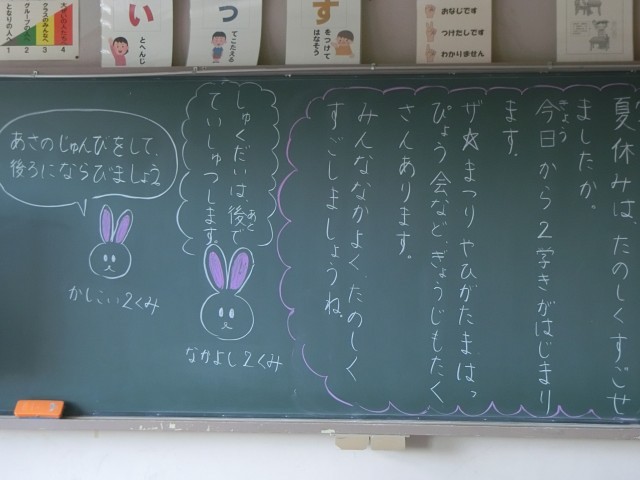 夏休みは、たのしくすごせ
ましたか。
今日から2学きがはじまり
きょう
ます。
ザ☆まつりやひがたまはっ
ぴょう会など、ぎょうじもたく
さんあります。
みんななかよく、たのしく
すごしましょうね。
しゅくだいは後で
あと
ていしゅつします。
なかよし2くみ
あさのじゅんびをして、
後ろにならびましょう。
かしこい2くみ
おなじです
つけだしです
わかりません
す
をつけて
はなそう
つ
てこたえる
い
とへんじ
大ぜいの人たちへ 4
クラスのみんなへ 3
グループの人へ 2
となりの人へ 1